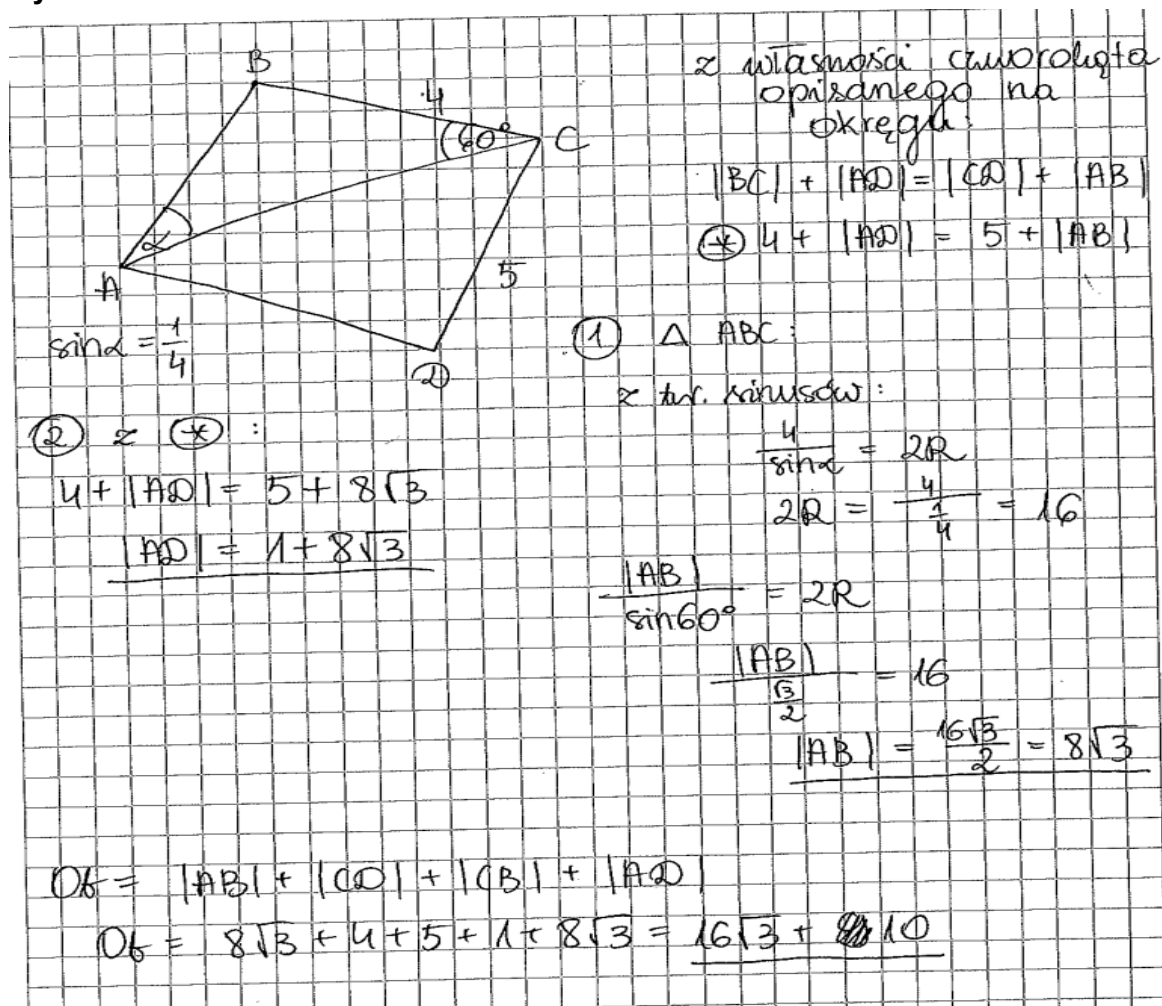 B
4
60°
C
α
A
5
D
sinα = 1/4
z własności czworokąta
opisanego na
okręgu:
|BC| + |AD| = |CD| + |AB|
(*) 4 + |AD| = 5 + |AB|
(1) Δ ABC:
z tw. sinusów:
4/sinα = 2R
2R = 4/(1/4) = 16
|AB|/sin60° = 2R
|AB|/(√3/2) = 16
|AB| = 16√3/2 = 8√3
(2) z (*) :
4 + |AD| = 5 + 8√3
|AD| = 1 + 8√3
Ob = |AB| + |CD| + |CB| + |AD|
Ob = 8√3 + 4 + 5 + 1 + 8√3 = 16√3 + 10